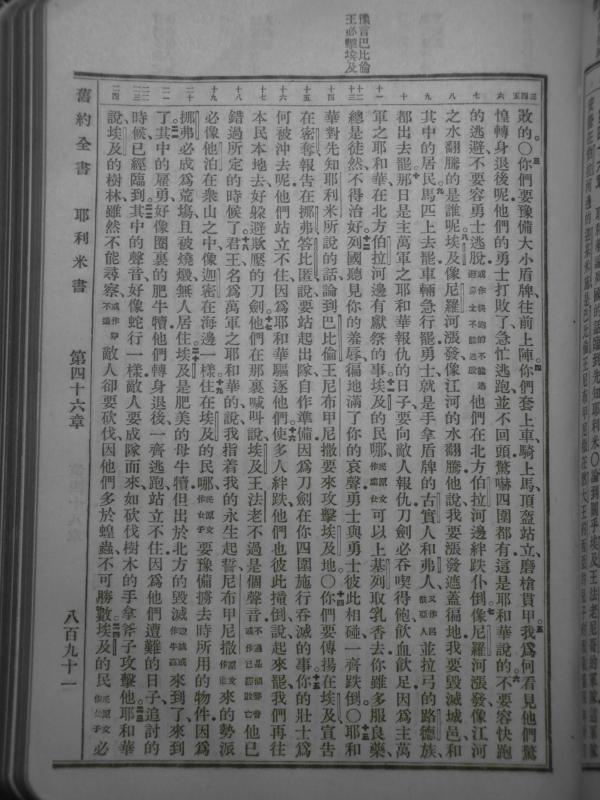 豫言巴比倫
王必擊埃及
敗的〇你們要豫備大小盾牌往前上陣你們套上車騎上馬頂盔站立磨槍貫甲我為何看見他們驚
惶轉身退後呢他們的勇士打敗了急忙逃跑並不回頭驚嚇四圍都有這是耶和華說的不要容快跑
的逃避不要容勇士逃脫或作快跑的不能逃避勇士不能逃脫他們在北方伯拉河邊絆跌仆倒像尼羅河漲發像江河
之水翻騰的是誰呢埃及像尼羅河漲發像江河的水翻騰他說我要漲發遮蓋徧地我要毀滅城邑和
其中的居民馬匹上去罷車輛急行罷勇士就是手拿盾牌的古實人和弗人又作呂彼亞人並拉弓的路德族
都出去罷那日是主萬軍之耶和華報仇的日子要向敵人報仇刀劍必吞喫得飽飲血飲足因為主萬
軍之耶和華在北方伯拉河邊有獻祭的事埃及的民哪民原文作處女可以上基列取乳香去你雖多服良藥
總是徒然不得治好列國聽見你的羞辱徧地滿了你的哀聲勇士與勇士彼此相碰一齊跌倒〇耶和
華對先知耶利米所說的話論到巴比倫王尼布甲尼撒要來攻擊埃及地〇你們要傳揚在埃及宣告
在密奪報告在挪弗答比匿說要站起出隊自作準備因為刀劍在你四圍施行吞滅的事你的壯士為
何被沖去呢他們站立不住因為耶和華驅逐他們使多人絆跌他們也彼此撞倒說起來罷我們再往
本民本地去好躲避欺壓的刀劍他們在那裏喊叫說埃及王法老不過是個聲音他已
錯過所定的時候了君王名為萬軍之耶和華的說我指着我的永生起誓尼布甲尼撒來的勢派
必像他泊在眾山之中像迦密在海邊一樣住在埃及的民哪要豫備擄去時所用的物件因為
挪弗必成為荒場且被燒燬無人居住埃及是肥美的母牛犢但出於北方的毀滅來到了來到
了其中的雇勇好像圈裏的肥牛犢他們轉身退後一齊逃跑站立不住因為他們遭難的日子追討的
時候已經臨到其中的聲音好像蛇行一樣敵人要成隊而來如砍伐樹木的手拿斧子攻擊他耶和華
說埃及的樹林雖然不能尋察敵人卻要砍伐因他們多於蝗蟲不可勝數埃及的民必
舊約全書　耶利米書　第四十六章　八百九十一